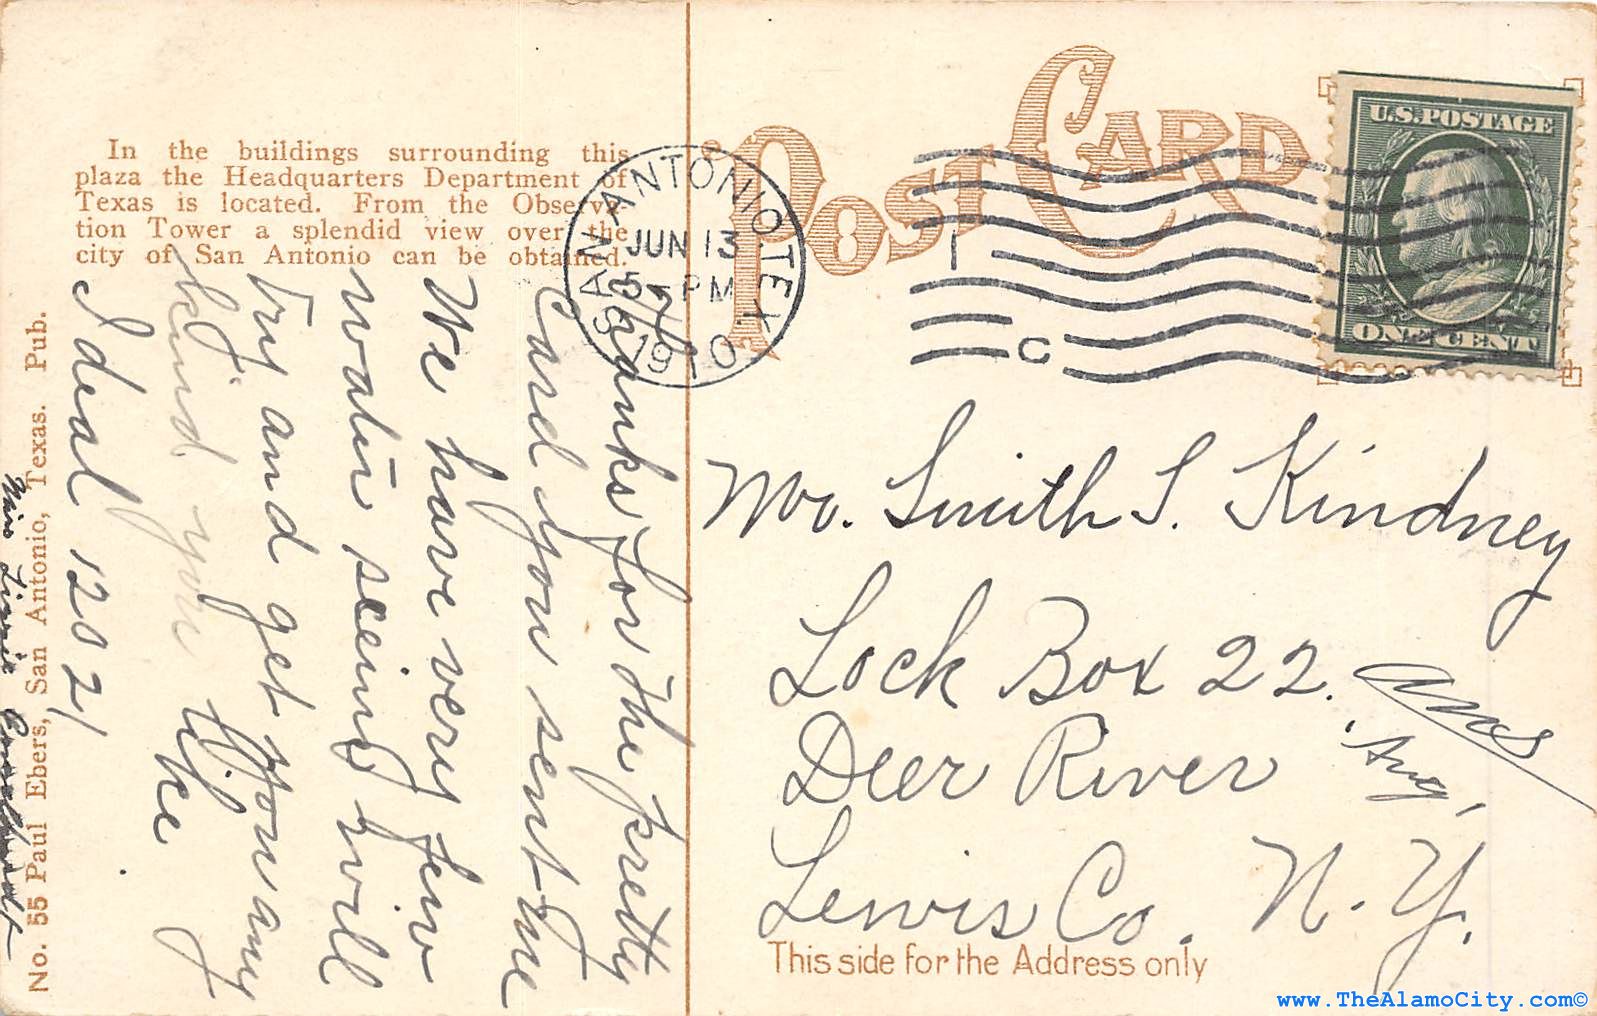 In the buildings surrounding this
plaza the Headquarters Department of
Texas is located. From the Observa-
tion Tower a splendid view over the
city of San Antonio can be obtained.
POST CARD
SAN ANTONIO. TEX.
JUN 13
5 - PM
1910
1
C
U.S. POSTAGE
ONE CENT
Thanks for the pretty
Card you sent me
We have very few
water seeing will
try and get you any
kind you like
Ideal 12021
No. 55 Paul Ebers, San Antonio, Texas. Pub.
Miss Lizzie
Mr. Smith S. Kindney
Lock Box 22.
Deer River
Lewis Co. N. Y.
Ans
Aug,
This side for the Address only
www.TheAlamoCity.com©